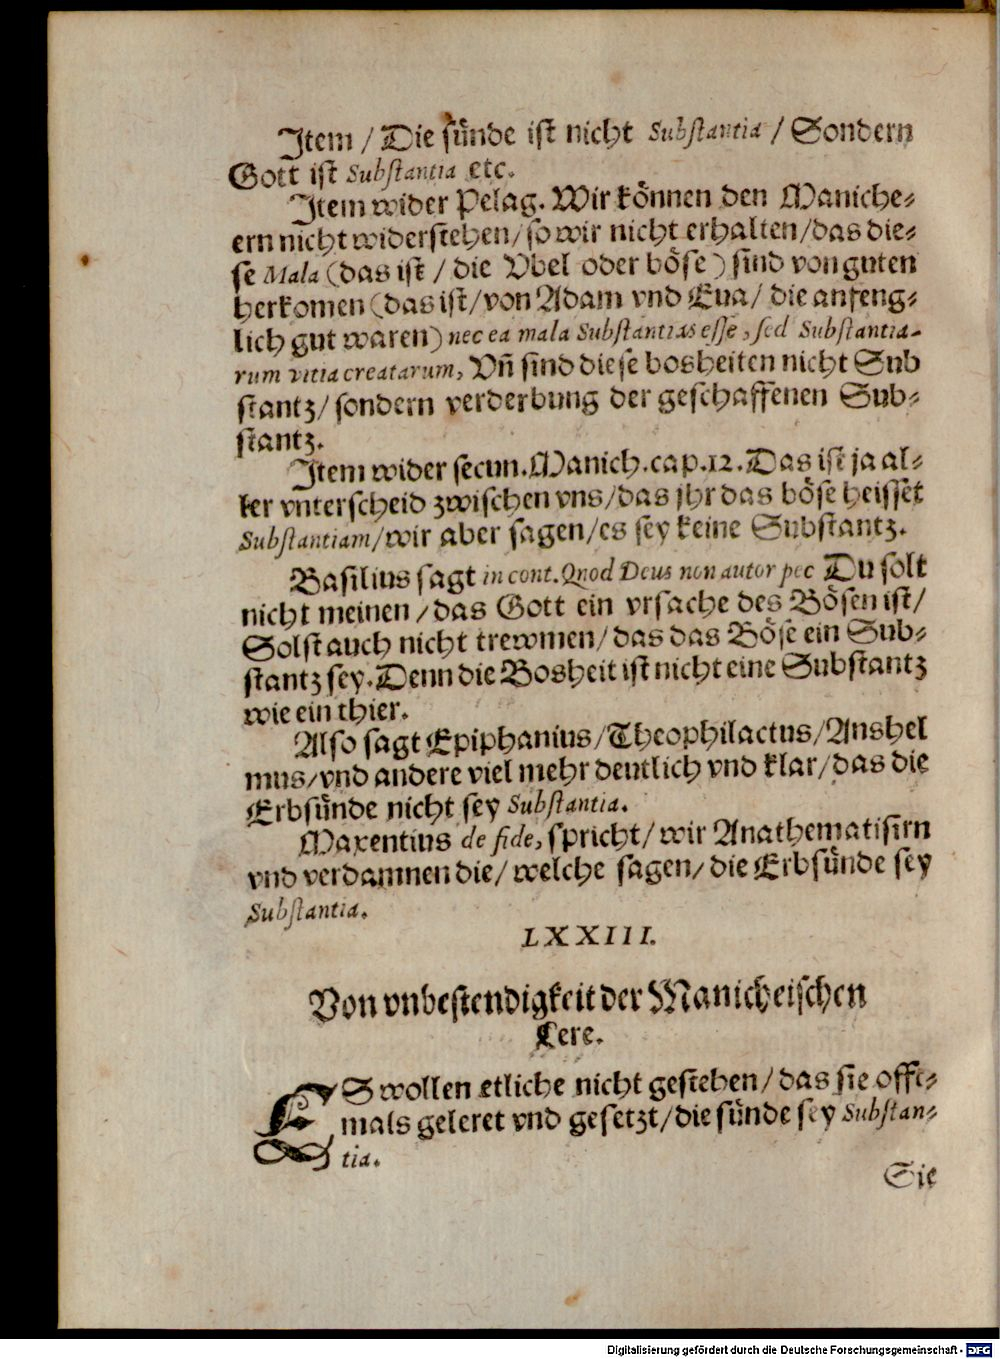 Item / Die sünde ist nicht Substantia / Sondern
Gott ist Substantia etc.
Item wider Pelag. Wir können den Maniche⸗
ern nicht widerstehen/ so wir nicht erhalten/ das die⸗
se Mala (das ist / die Vbel oder böse) sind von guten
herkomen (das ist/ von Adam vnd Eua/ die anfeng⸗
lich gut waren) nec ea mala Substantias esse, sed Substantia-
rum vitia creatarum, Vñ sind diese bosheiten nicht Sub
stantz/ sondern verderbung der geschaffenen Sub⸗
stantz.
Item wider secun. Manich. cap. 12. Das ist ja al⸗
ler vnterscheid zwischen vns/ das jhr das böse heisset
Substantiam/ wir aber sagen/ es sey keine Substantz.
Basilius sagt in cont. Quod Deus non autor pec Du solt
nicht meinen / das Gott ein vrsache des Bösen ist/
Solst auch nicht trewmen/ das das Böse ein Sub⸗
stantz sey. Denn die Bosheit ist nicht eine Substantz
wie ein thier.
Also sagt Epiphanius/ Theophilactus/ Anshel
mus/ vnd andere viel mehr deutlich vnd klar/ das die
Erbsünde nicht sey Substantia.
Maxentius de fide, spricht/ wir Anathematisirn
vnd verdamnen die/ welche sagen/ die Erbsünde sey
Substantia.
LXXIII.
Von vnbestendigkeit der Manicheischen
Lere.
ES wollen etliche nicht gestehen/ das sie offt⸗
mals geleret vnd gesetzt/ die sünde sey Substan⸗
tia.
Sie
Digitalisierung gefördert durch die Deutsche Forschungsgemeinschaft - DFG